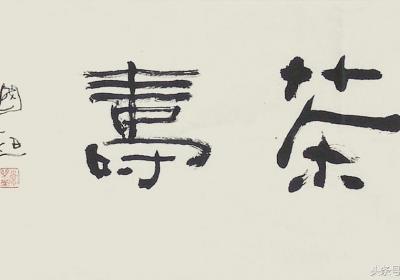 茶壽
头条号